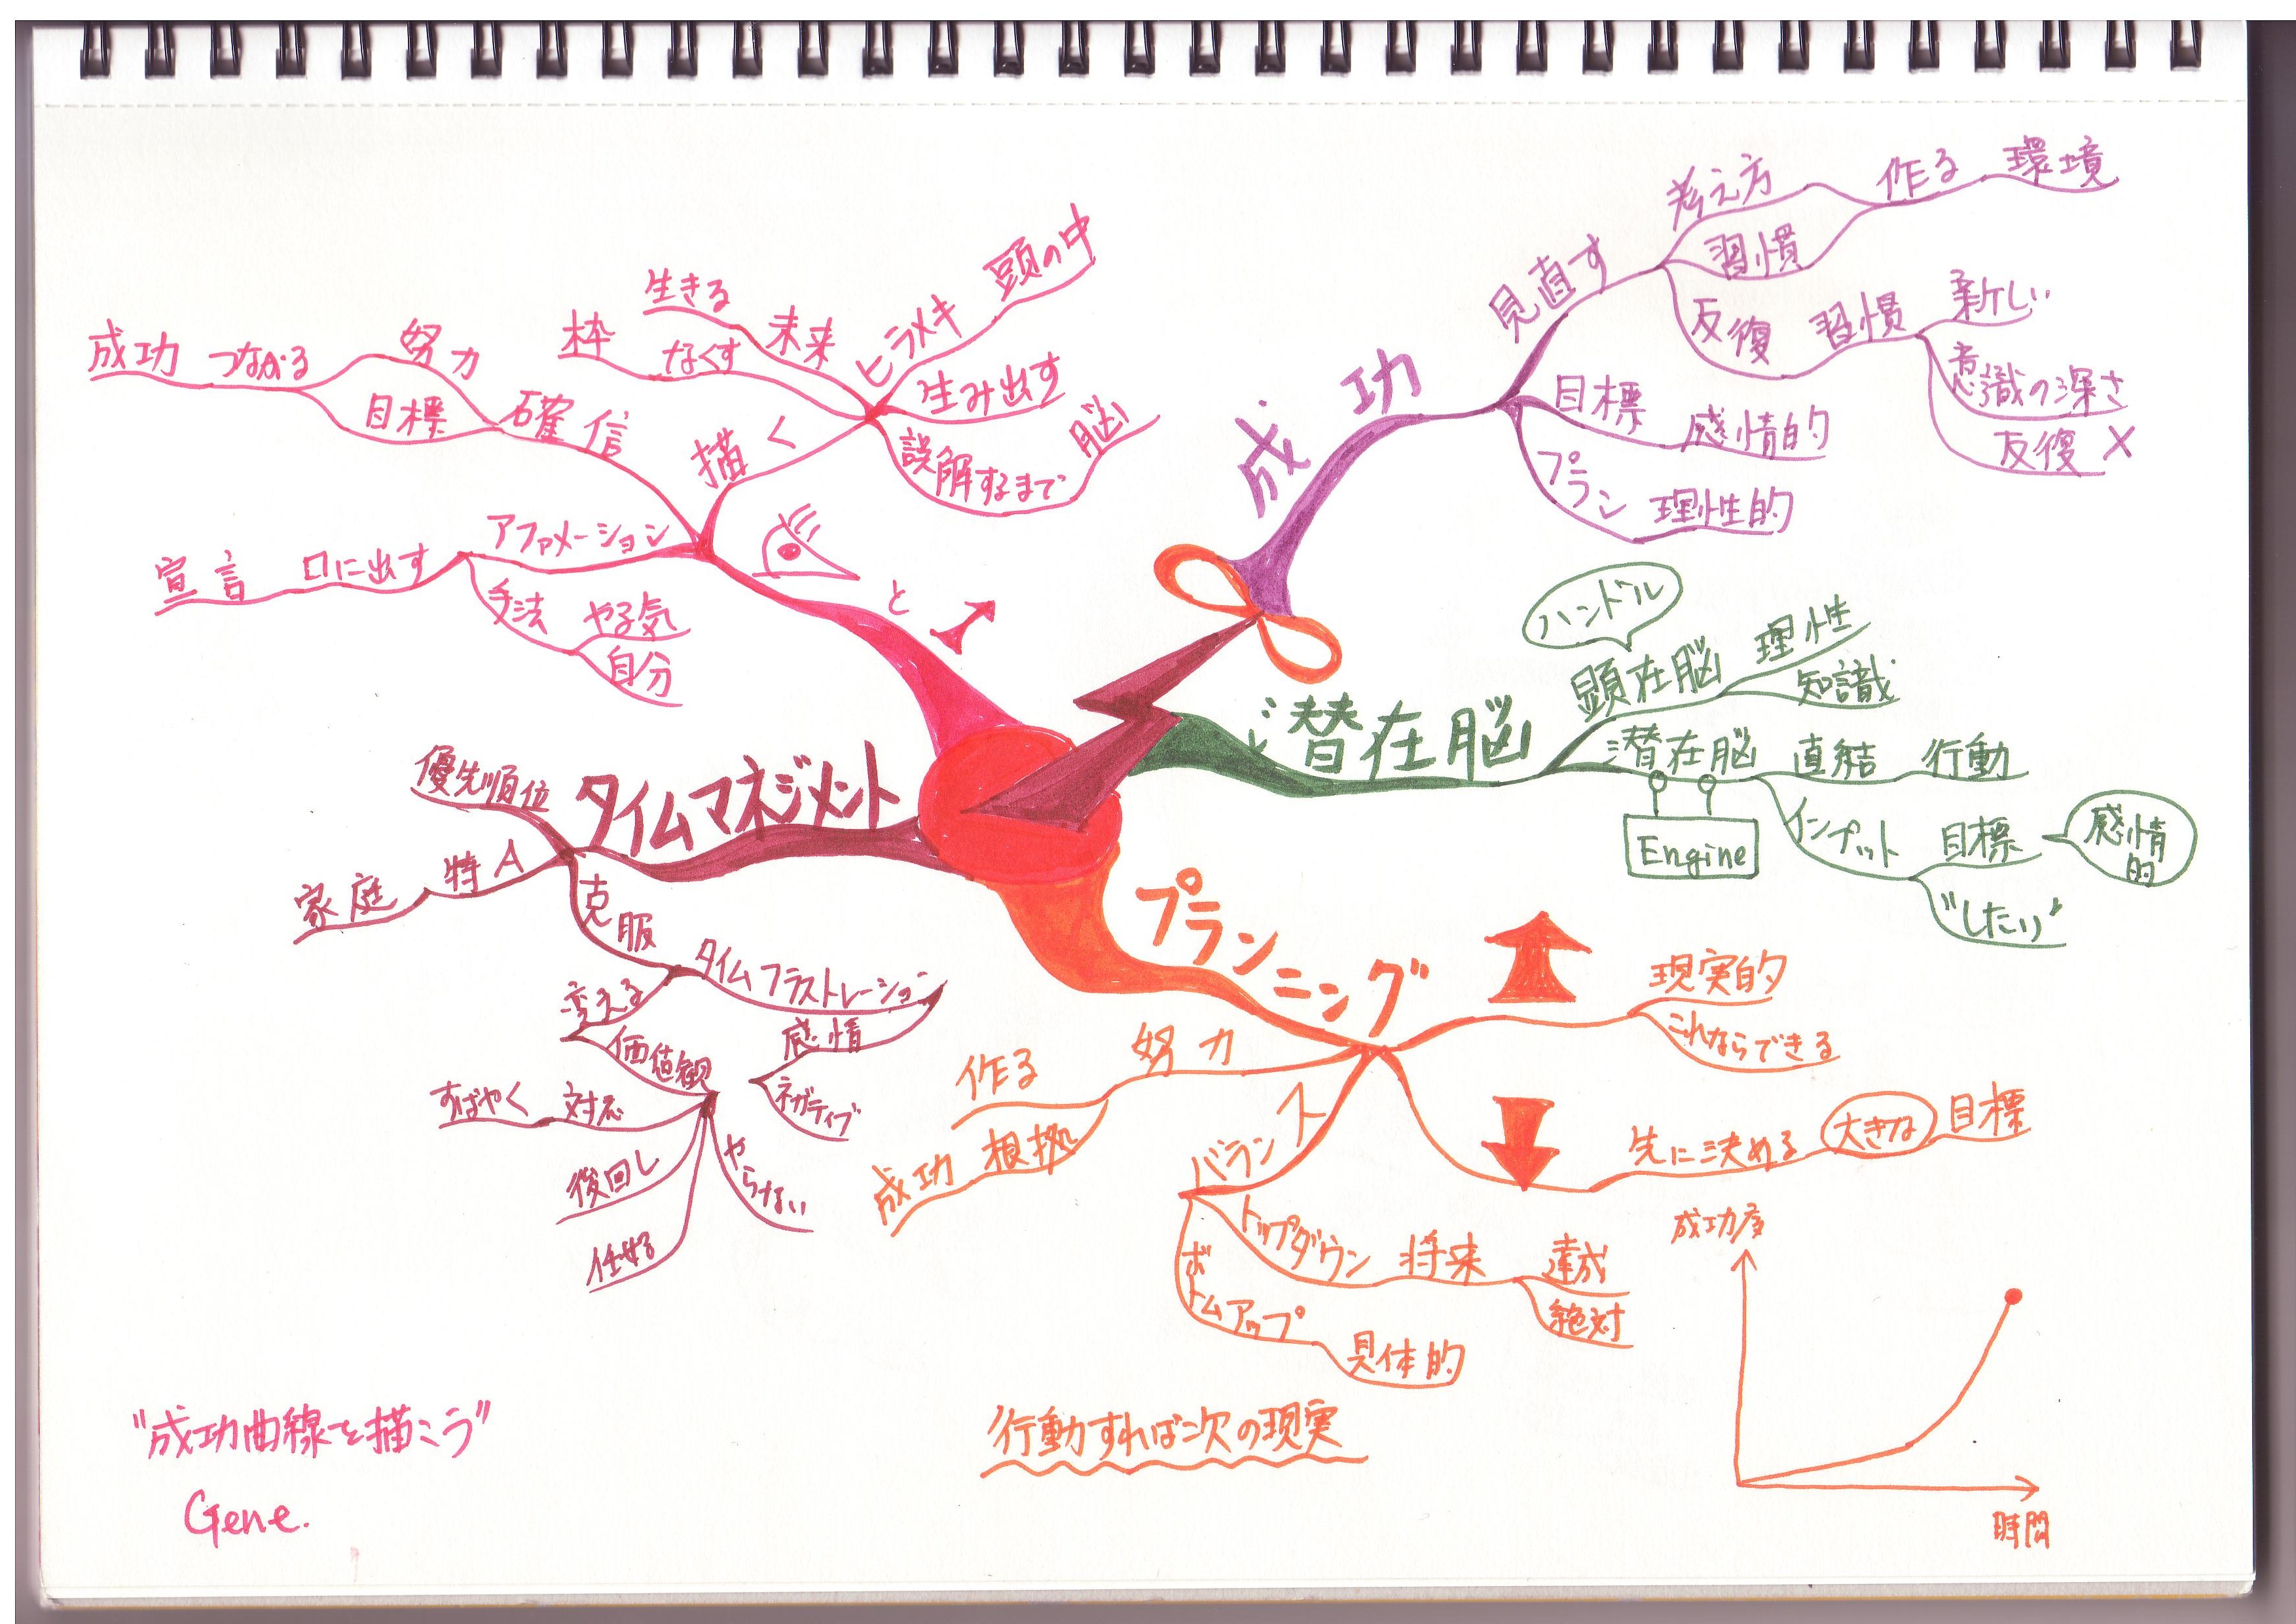 成功
見直す
考え方
習慣
作る
環境
反復
習慣
新しい
意識の深さ
反復 ×
目標
感情的
プラン
理性的
潜在脳
ハンドル
顕在脳
理性
知識
潜在脳
直結
行動
Engine
インプット
目標
感情的
"したい"
プランニング
現実的
これならできる
先に決める
大きな
目標
努力
作る
成功
根拠
トップダウン
将来
達成
絶対
ボトムアップ
具体的
成功度
時間
行動すれば次の現実
タイムマネジメント
優先順位
特A
家庭
克服
タイムフラストレーション
感情
ネガティブ
変える
価値観
すばやく
対応
後回し
任せる
やらない
と
描く
ヒラメキ
頭の中
生み出す
誤解するまで
脳
未来
生きる
なくす
枠
確信
努力
目標
つながる
成功
アファメーション
口に出す
宣言
手法
やる気
自分
"成功曲線を描こう"
Gene.